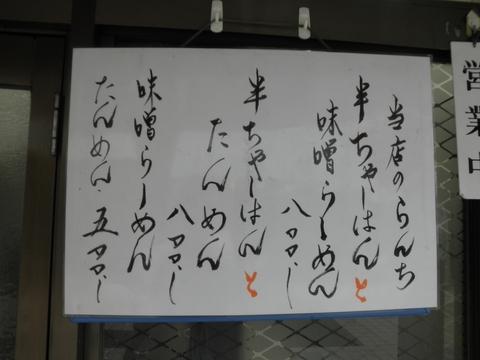 当店のらんち
半ちゃーはんと
味噌らーめん
八〇〇、ー
半ちゃーはんと
たんめん
八〇〇、ー
味噌らーめん
たんめん 五〇〇、ー
営業中